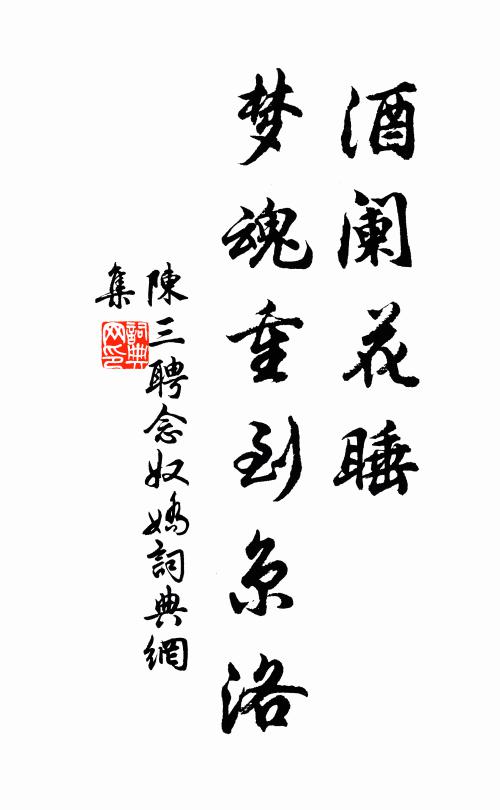 酒阑花睡
梦魂重到京洛
陳三聘念奴嬌詞典網
集
詞典
网印